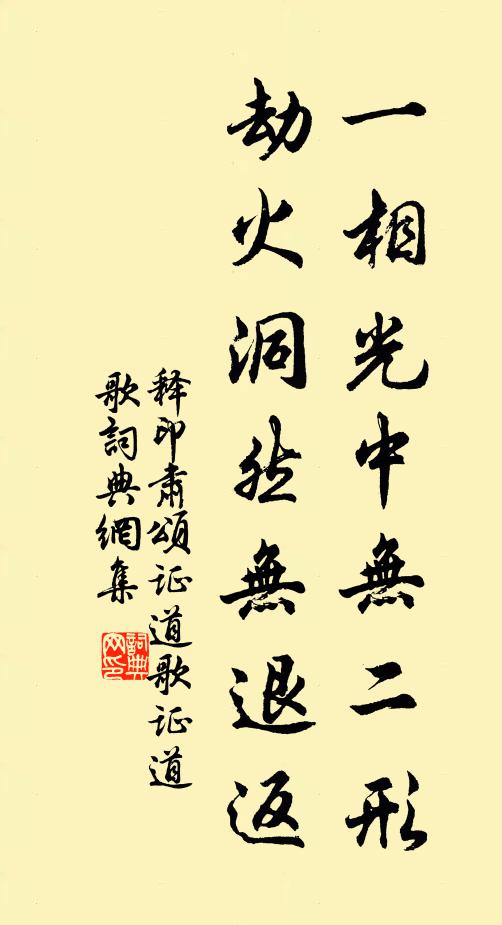 一相光中無二形
劫火洞然無退返
释印肃颂证道歌证道
歌詞典網集
詞典网印